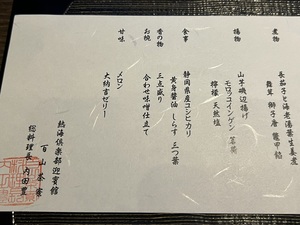 煮物
長茄子と海老湯葉生姜煮
舞茸 獅子唐 鼈甲餡
揚物
山芋磯辺揚げ
モロッコインゲン 茗荷
檸檬 天然塩
食事
静岡県産コシヒカリ
黄身醤油 しらす 三つ葉
香の物
三点盛り
お椀
合わせ味噌仕立て
甘味
メロン
大納言ゼリー
熱海倶楽部迎賓館
百山茶寮
総料理長 内田豊